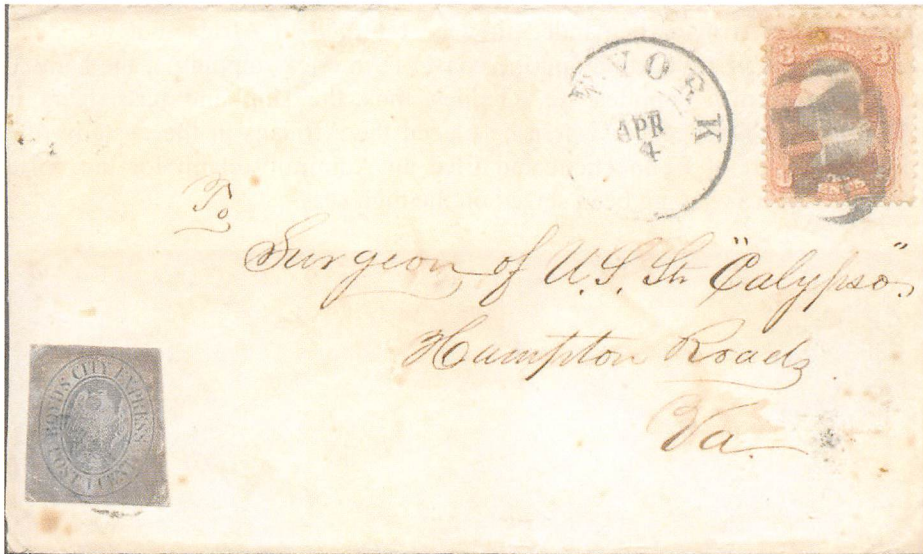 W YORK
APR
4
3 3
To
Surgeon of U.S. Str "Calypso"
Hampton Roads
Va.
BOYD'S CITY EXPRESS
POST 1 CENT